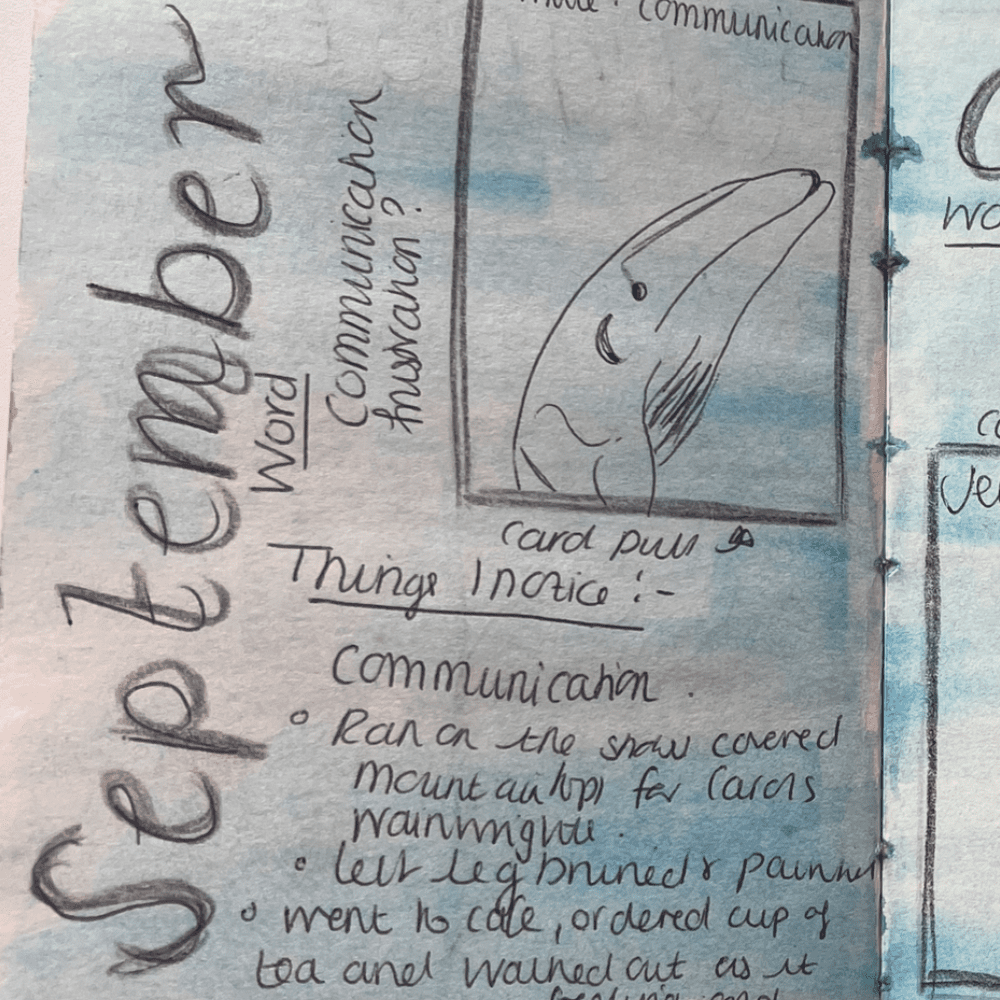 September
Word
Communication
frustration?
communication
card pull
Things I notice :-
Communication.
Ran on the snow covered
mountain tops for Carols
left leg bruised & painful
went to cafe, ordered cup of
tea and walked out as it
and